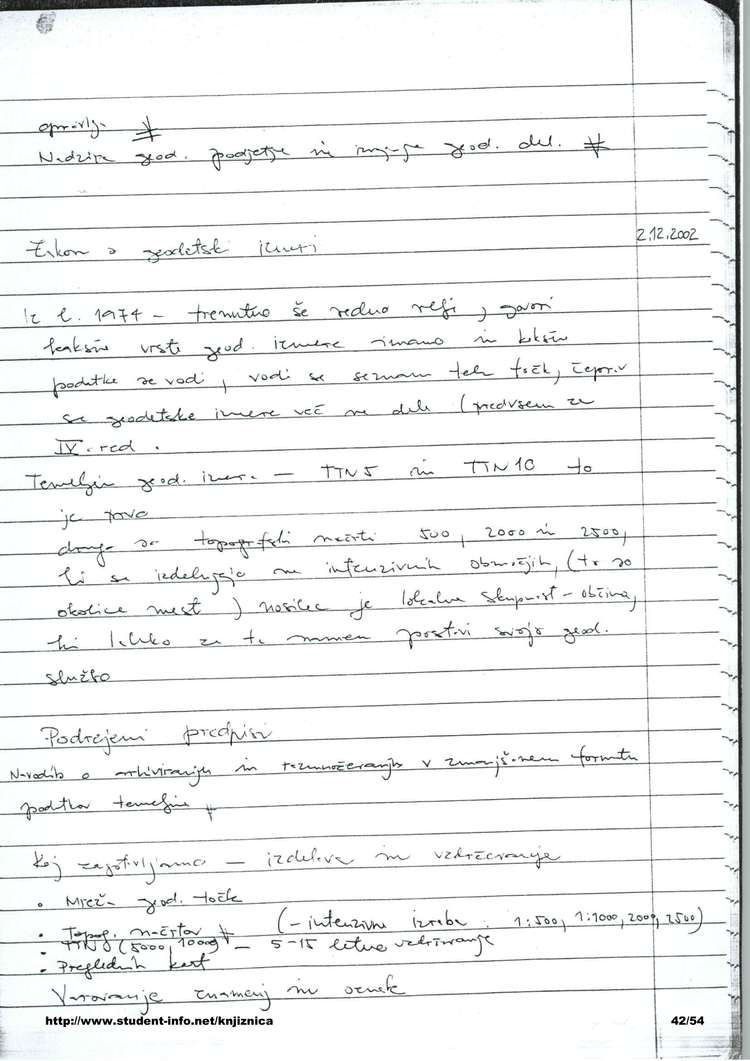 opravlja
Nadzira geod. podjetja in geod. del.
2.12.2002
Zakon o geodetski izmeri
Iz l. 1974 - trenutno še vedno velja, govori
kakšne vrste geod. izmere imamo in kakšne
podatke se vodi, vodi se seznam teh točk, čeprav
se geodetske izmere več ne dela (predvsem za
IV. red.
Temeljna geod. izmera - TTN5 in TTN10 to
je prva
druga so topografski načrti 500, 2000 in 2500,
ki se izdelujejo na intenzivnih območjih, (to so
okolice mest) nosilec je lokalna skupnost - občina,
ki lahko za ta namen postavi svojo geod.
službo
Podrejeni predpisi
Navodilo o arhiviranju in razmnoževanju v zmanjšanem formatu
podatkov temeljne
Kaj zagotavljamo - izdelava in vzdrževanje
• Mreža geod. točk
• Topog. načrtov (-intenzivna izraba : 1:500, 1:1000, 2000, 2500)
• TTN (5000, 10000) - 5-15 letno vzdrževanje
• Preglednih kart
Varovanje znamenj in oznak
http://www.student-info.net/knjiznica 42/54